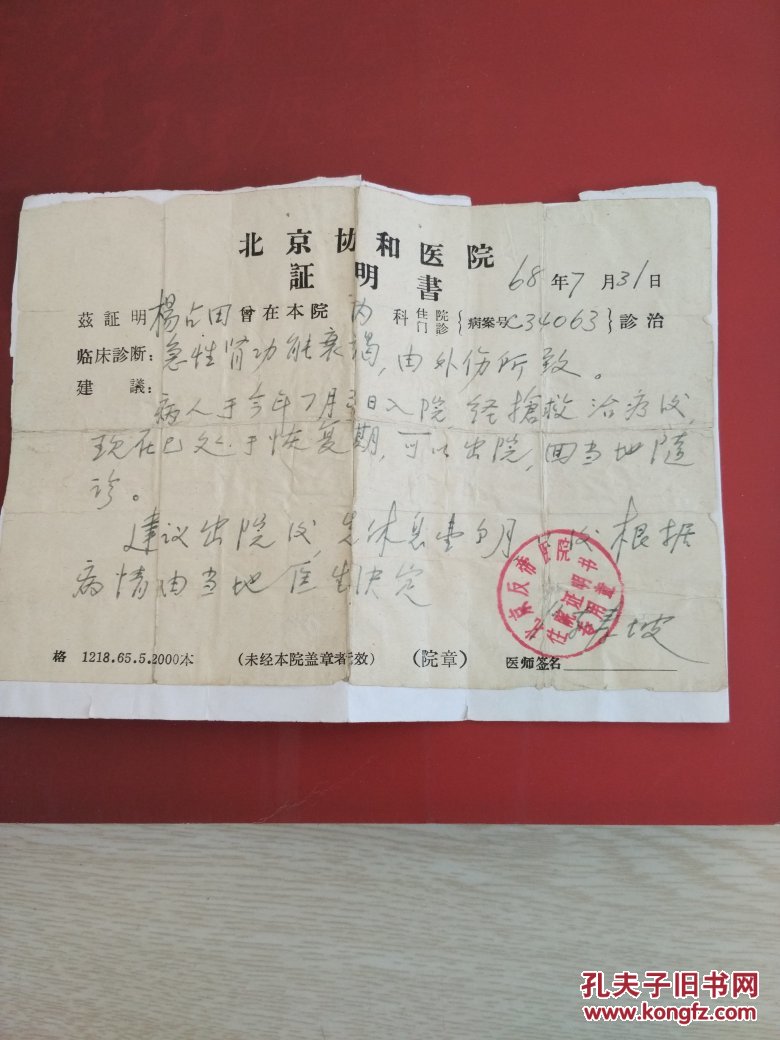 北京协和医院
証明書
68年7月31日
茲証明楊占田曾在本院内科住院門診}病案号C34063}診治
临床診断：急性肾功能衰竭，由外伤所致。
建議：
病人于今年7月3日入院经搶救治疗後，
现在已处于恢复期，可以出院，回当地隨
诊。
建议出院後，先休息壹个月，以後根据
病情由当地医生决定
北京反帝医院
住院证明书
专用章
格 1218.65.5.2000本 (未经本院盖章者无效) (院章) 医师签名
孔夫子旧书网
www.kongfz.com